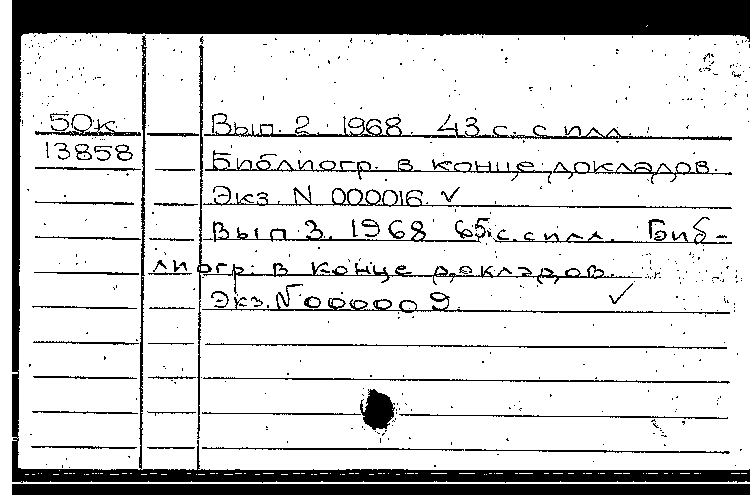 2
50к Вып. 2. 1968. 43 с. с илл.
13858 Библиогр. в конце докладов.
Экз. N 000016. ✓
Вып 3. 1968 65 с. с илл. Биб-
лиогр. в конце докладов.
Экз. N 000009. ✓